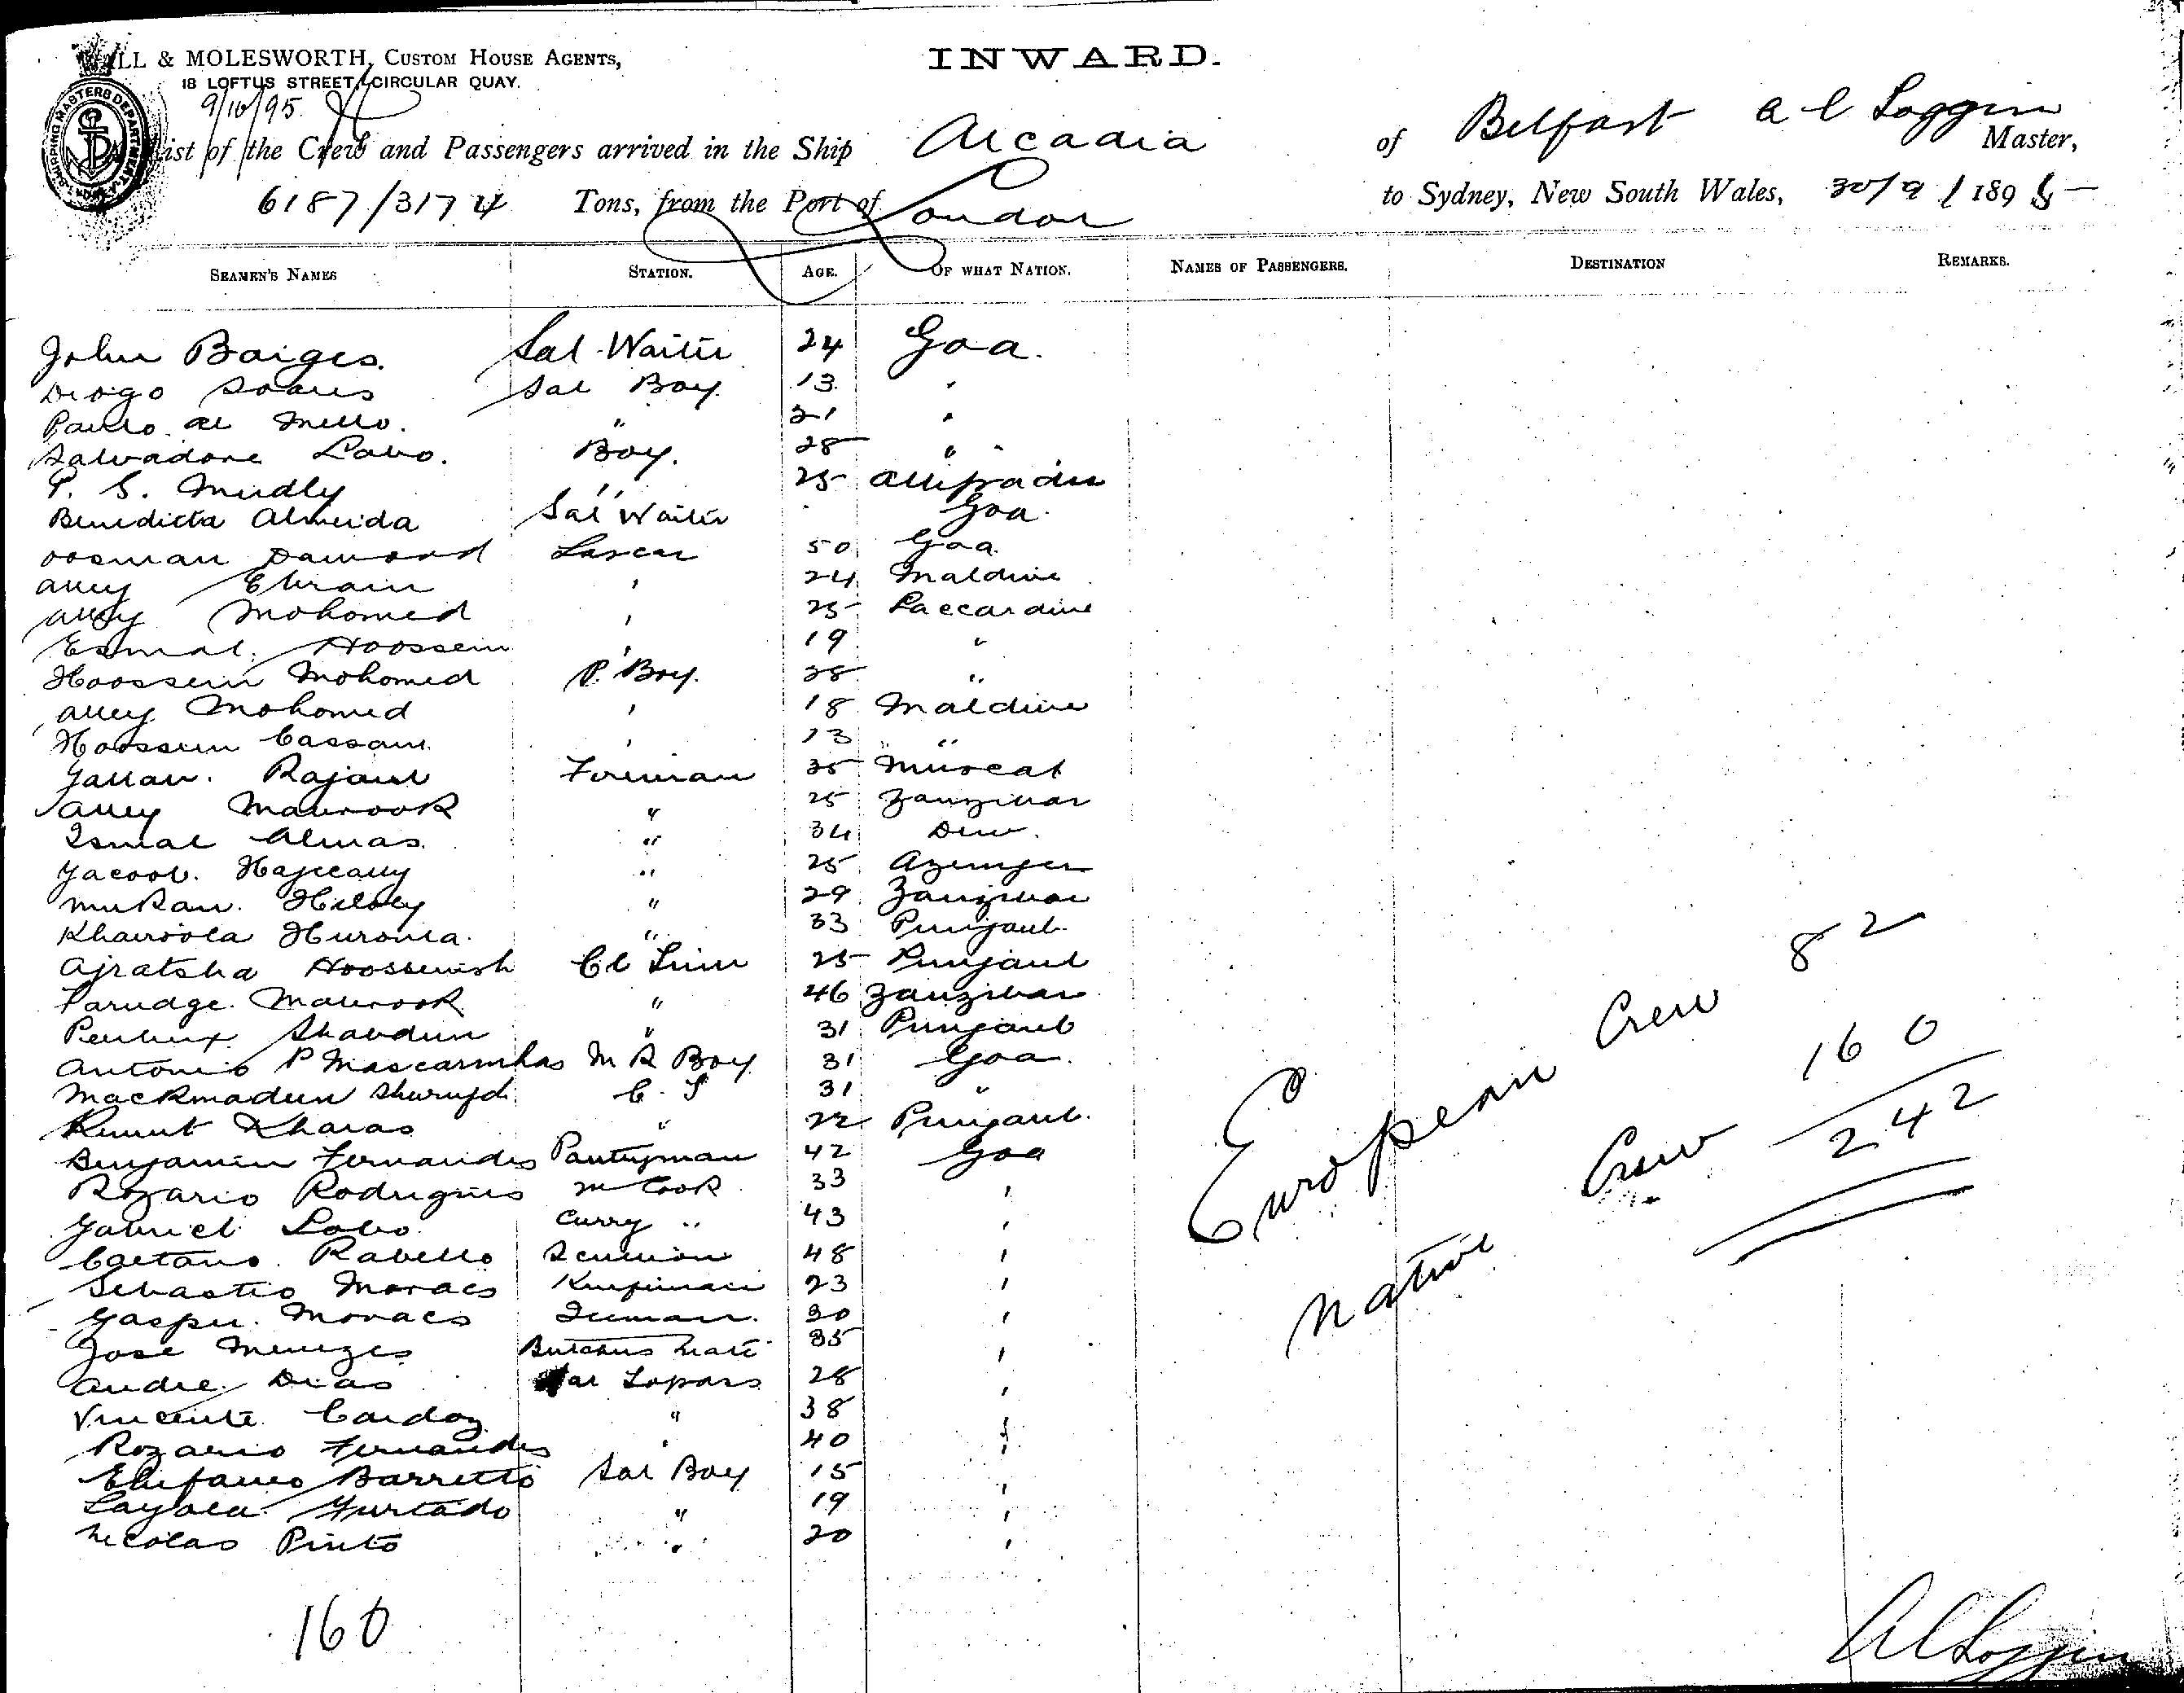 WALL & MOLESWORTH, CUSTOM HOUSE AGENTS,
18 LOFTUS STREET, CIRCULAR QUAY.
INWARD.
9/10/95
SHIPPING MASTERS DEPARTMENT
A List of the Crew and Passengers arrived in the Ship Arcadia of Belfast A C Loggin Master,
6187/3174 Tons, from the Port of London to Sydney, New South Wales, 30/9/1895
SEAMEN'S NAMES STATION. AGE. OF WHAT NATION. NAMES OF PASSENGERS. DESTINATION REMARKS.
John Borges. Sal Waiter 24 Goa.
Diogo Soares Sal Boy. 13 "
Paulo de Mello. " 21 "
Salvadore Lobo. Boy. 28 " "
P. S. Mudly " 25
Benedicta Almeida Sal Waiter Goa.
Oosman Dawood Lascar 50 Goa.
Alley Ebrain " 24 Maldive
Alley Mohomed " 25 Laccardive
Esmal. Hoossein " 19 "
Hoossein Mohomed P. Boy. 28 "
Alley Mohomed " 18 Maldive
Hoossein Cassam. " 13 " "
Rajaub Fireman 35 Muscat
Alley Mabrook " 25 Zanzibar
Ismal Almas. " 34 Diu.
Yacoob. " 25
" 29 Zanzibar
" 33 Punjaub.
Ajratsha Hoossenish Cl Trim 25 Punjaub
Farudge. Mabrook " 46 Zanzibar
Shabdun " 31 Punjaub
Antonio P Mascarinhas M R Boy 31 Goa.
Mackmadeen C. S 31 "
Kharas " 22 Punjaub.
Benjamin Fernandes Pantryman 42 Goa
Rozario Rodrigues M Cook 33 "
Gabriel Lobo. Curry " 43 "
Caetano. Rabello Scullion 48 "
Sebastio Moraes 23 "
Gasper. Moraes 30 "
Jose Menezes Butchers Mate 35 "
Andre. Dias Sal Topass 28 "
Vincente. Cardoz " 38 "
Rozario Fernandes " 40 "
Barretto Sal Boy 15 "
Layola Furtado " 19 "
Nicolas Pinto " 20 "
European Crew 82
Native Crew 160
242
160
A C Loggin